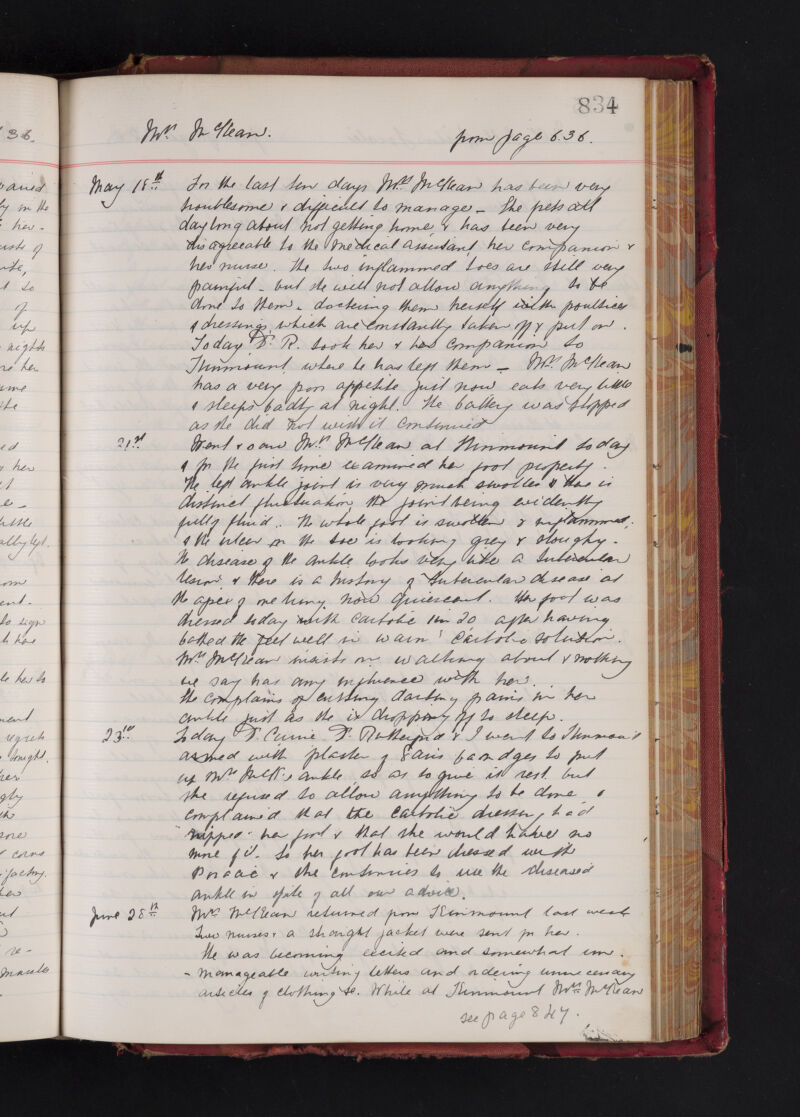 834
Mrs McLean. from page 636.
May 18th For the last ten days Mrs McLean has been very
troublesome & difficult to manage - She frets all
day long about not getting home, & has been very
disagreeable to the medical assistant, her companion &
her nurse. The two inflamed toes are still very
painful - but she will not allow anything to be
done to them - doctoring them herself with poultices
& dressings which are constantly taken off & put on.
Today Dr. R. took her & her companion to
Kinmount where he has left them - Mrs McLean
has a very poor appetite just now eats very little
& sleeps badly at night. The battery was stopped
as she did not wish it continued
21st Went & saw Mrs McLean at Kinmount today
& for the first time examined her foot properly.
The left ankle joint is very much swollen & there is
distinct fluctuation the joint being evidently
fully fluid. The whole foot is swollen & inflamed,
& the ulcer on the toe is looking grey & sloughy.
The disease of the ankle looks very like a tubercular
lesion & there is a history of tubercular disease at
the apex of one lung now quiescent. Her foot was
dressed today with Carbolic 1 in 20 after having
bathed the feet well in warm Carbolic solution.
Mrs McLean insists on walking about & nothing
we say has any influence with her.
She complains of cutting darting pains in her
ankle just as she is dropping off to sleep.
23rd Today Dr Currie Dr Rutherford & I went to Kinmount
armed with plaster of Paris bandges to put
up Mrs McL's ankle so as to give it rest but
she refused to allow anything to be done &
complained that the Carbolic dressing had
"nipped" her foot & that she would have no
more of it. So her foot has been dressed with
Boracic & she continues to use the diseased
ankle in spite of all our advice.
June 28th Mrs McLean returned from Kinmount last week
Two nurses & a straight jacket were sent for her.
She was becoming excited and somewhat un-
- manageable writing letters and ordering unnecessary
articles of clothing &c. While at Kinmount Mrs McLean
see page 847.
36.